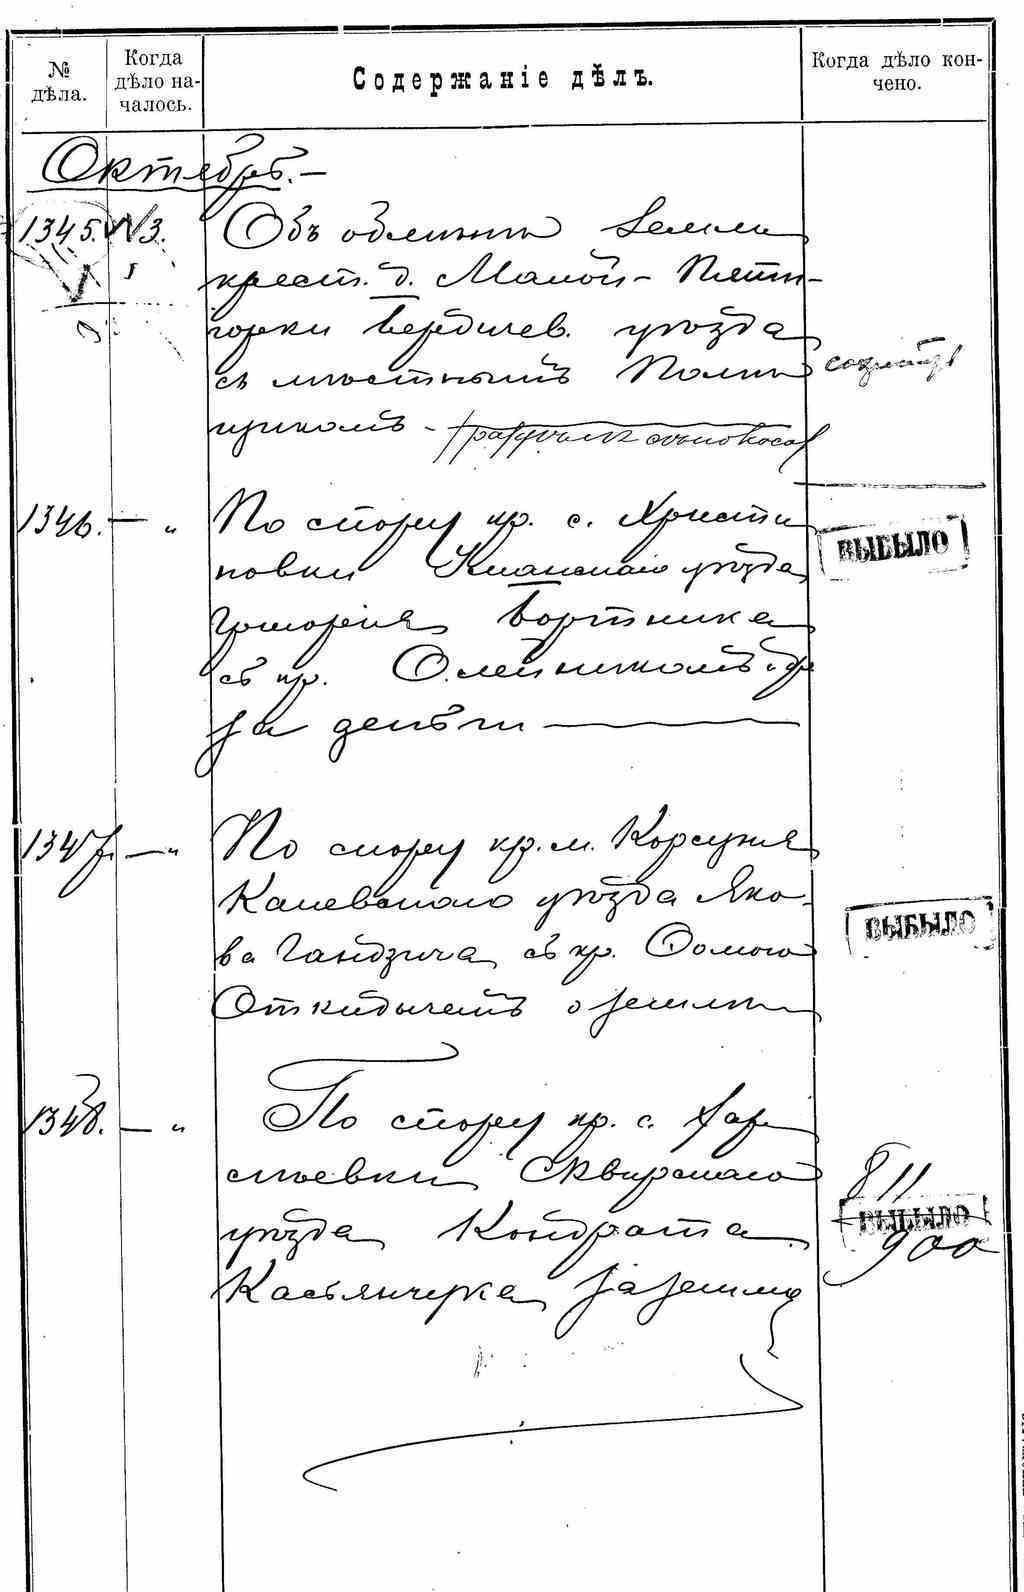 № дѣла.
Когда дѣло на-
чалось.
Содержаніе дѣлъ.
Когда дѣло кон-
чено.
Октябрь.-
1345. 3.
Объ обмѣнѣ земли
крест. д. Малой- Пяти-
горки Бердичев. уѣзда
съ мѣстнымъ Помѣ
щикомъ -
1346. — "
По спору кр. с. Христи
новки Уманскаго уѣзда
Григорія Бортника
съ кр. Олейникомъ и др
за деньги
ВЫБЫЛО
1347. — "
По спору кр. м. Корсуня
Каневскаго уѣзда Яко-
ва Гандзича съ кр. Ѳомою
Откидычемъ о землѣ
ВЫБЫЛО
1348. — "
По спору кр. с. Хар
лѣевки Сквирскаго
уѣзда Кондрата
Касьянчука за землю
811
ВЫБЫЛО
900